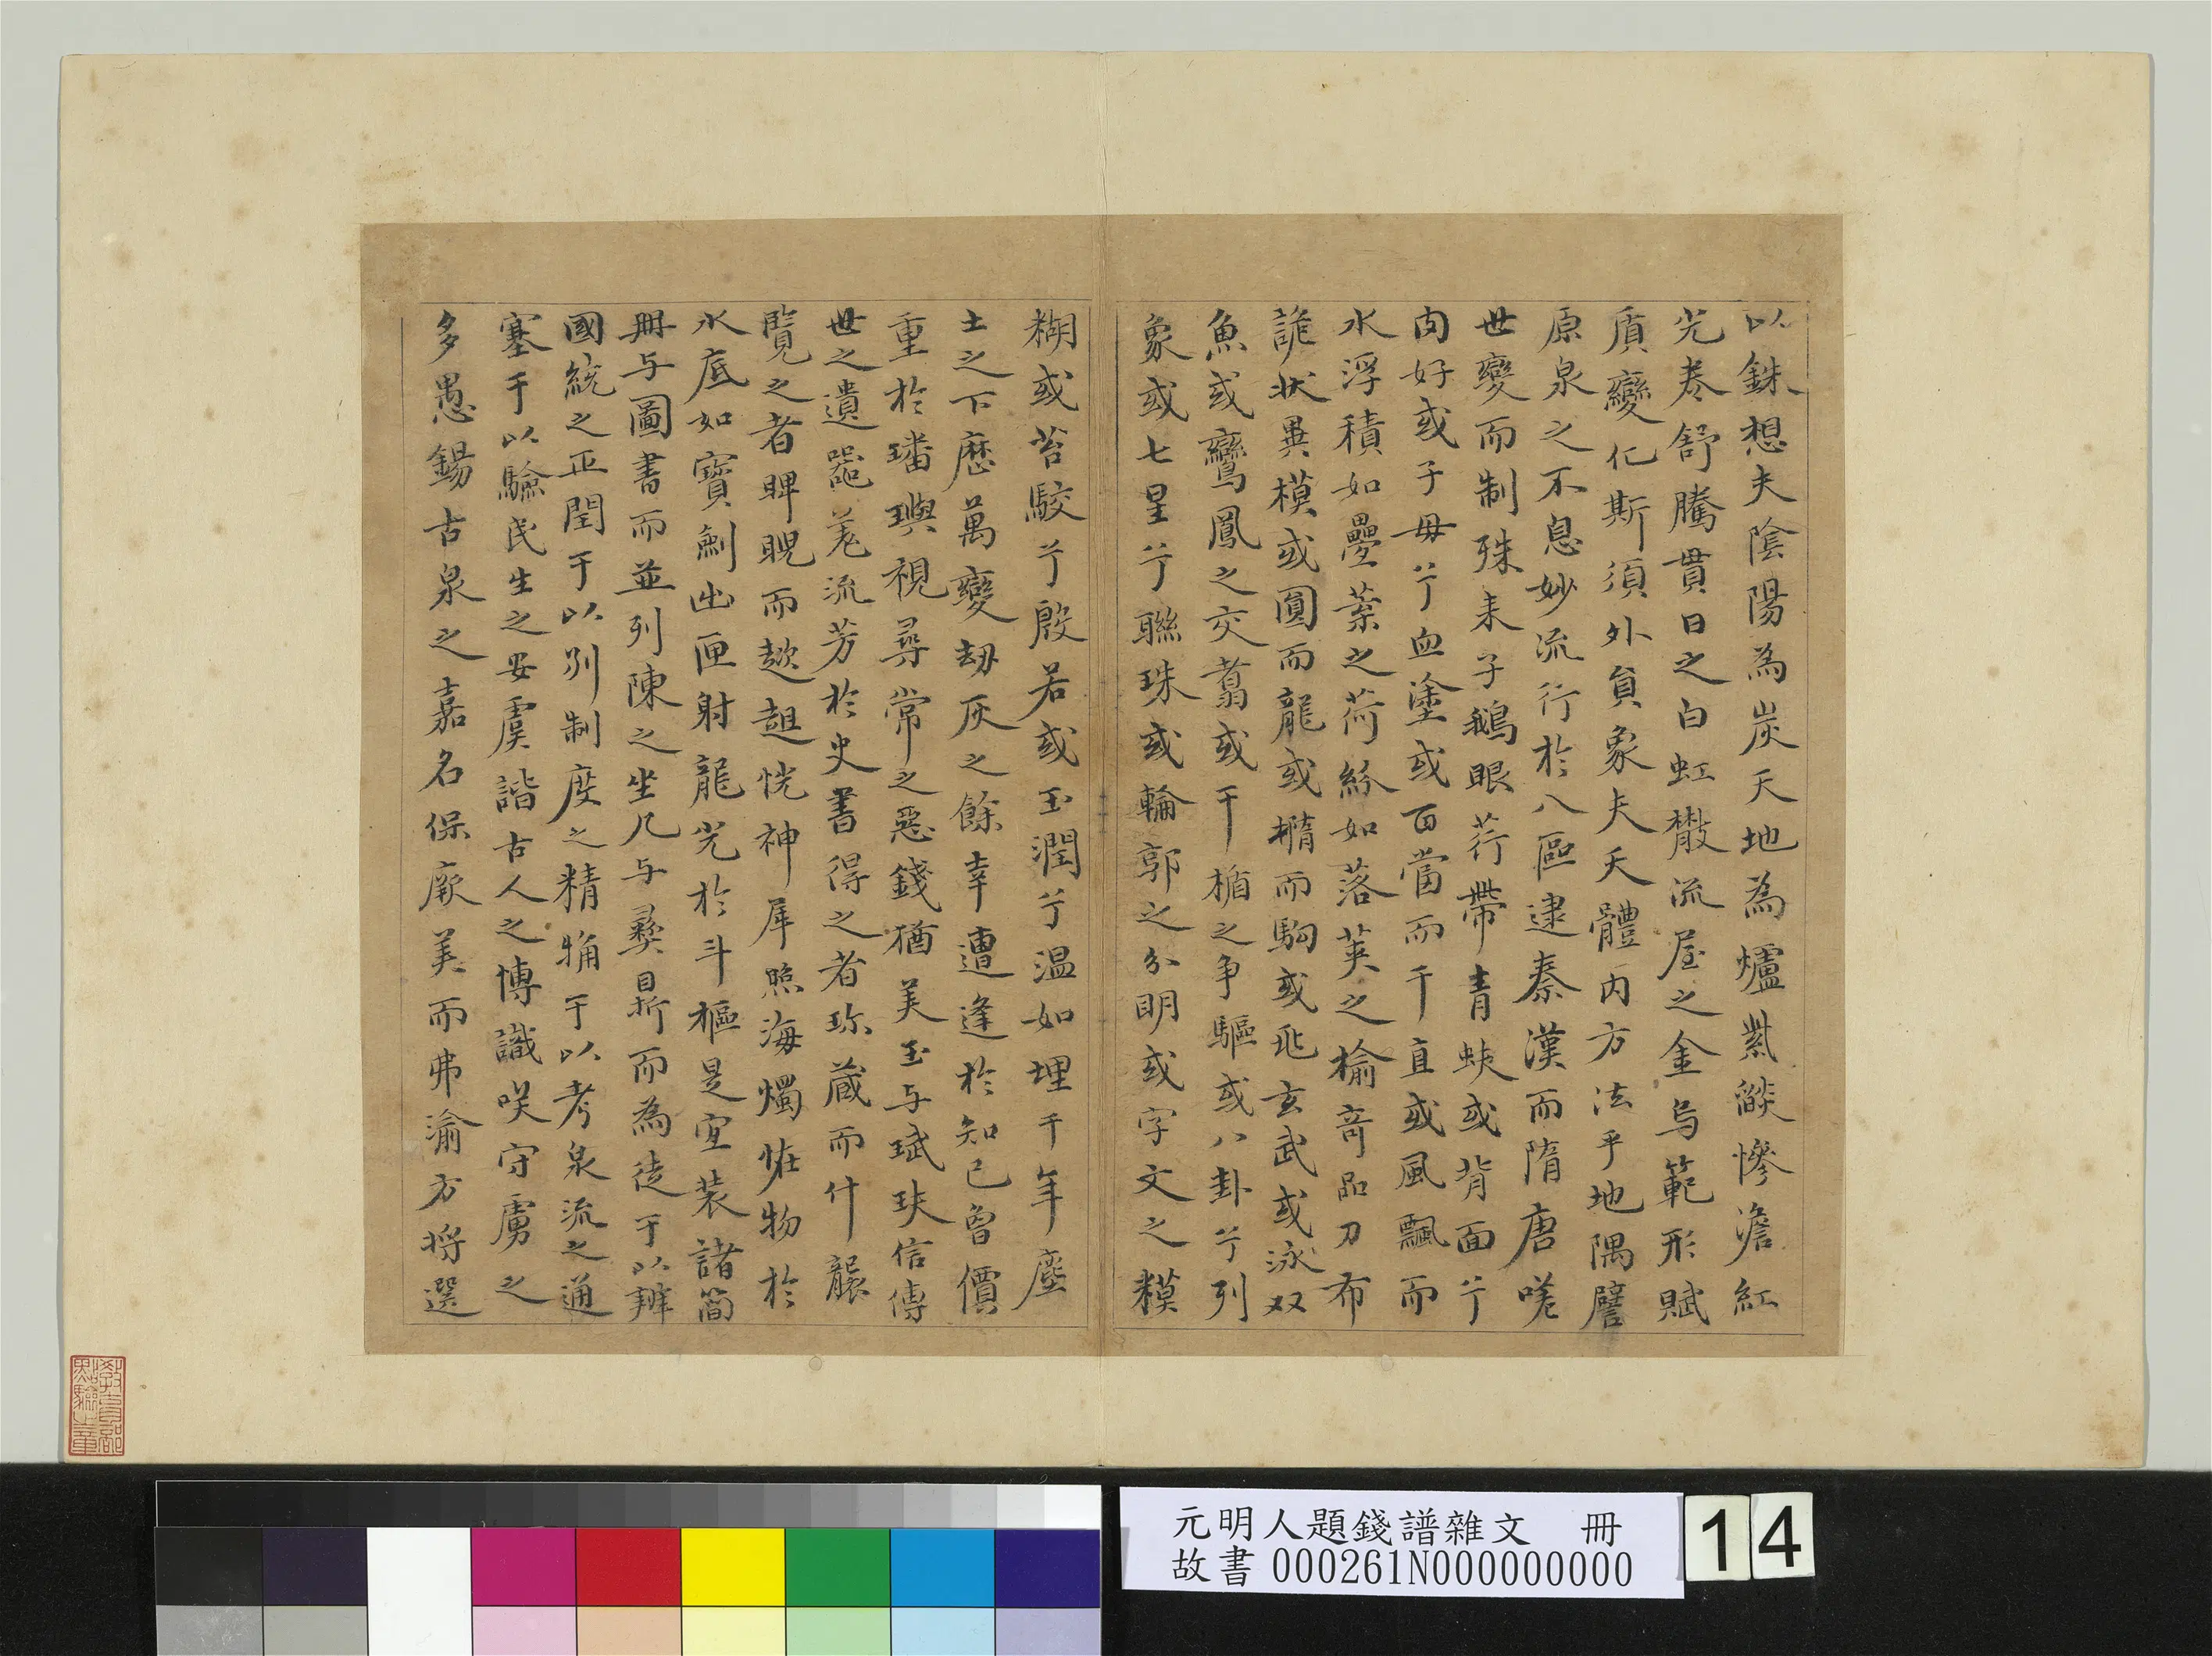 以銖想夫陰陽為炭天地為爐紫燄慘澹紅
光卷舒騰貫日之白虹散流屋之金烏範形賦
質變化斯須外員象夫天體內方法乎地隅譬
原泉之不息妙流行於八區逮秦漢而隋唐嗟
世變而制殊耒子鵝眼荇帶青蚨或背面兮
肉好或子毋兮血塗或百當而千直或風飄而
水浮積如疊葉之荷紛如落莢之榆奇品刀布
詭狀異模或圓而龍或橢而駒或玄武或泳双
魚或鸞鳳之交翥或干楯之争驅或八卦兮列
象或七星兮聯珠或輪郭之分明或字文之糢
糊或苔駮兮殷若或玉潤兮温如埋千年塵
土之下歷萬變劫灰之餘幸遭逢於知己曾價
重於璠璵視尋常之惡錢猶美玉与珷玞信傳
世之遺噐羌流芳於史書得之者珎蔵而什襲
覽之者睥睨而趑趄恍神犀照海燭恠物於
水底如寶劍出匣射龍光於斗樞是宜装諸簡
冊与圖書而並列陳之坐几与彝鼎而為徒于以辨
國統之正閏于以别制度之精觕于以考泉流之通
塞于以驗民生之安虞諧古人之博識咲守虜之
多愚錫古泉之嘉名保厥美而弗渝方将選
教育部點驗之章
元明人題錢譜雜文 冊
故書000261N000000000
14